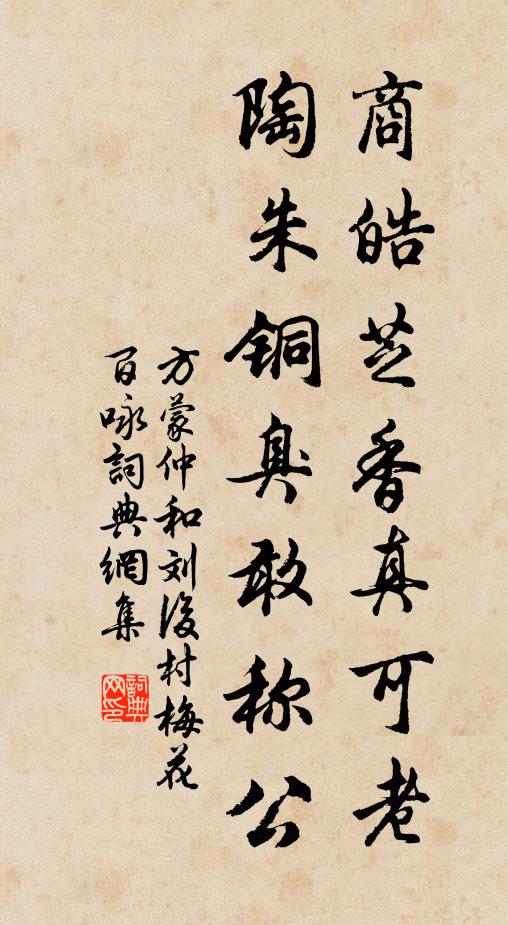 商皓芝香真可老
陶朱铜臭敢称公
方蒙仲和刘后村梅花
百咏詞典網集
詞典
网印